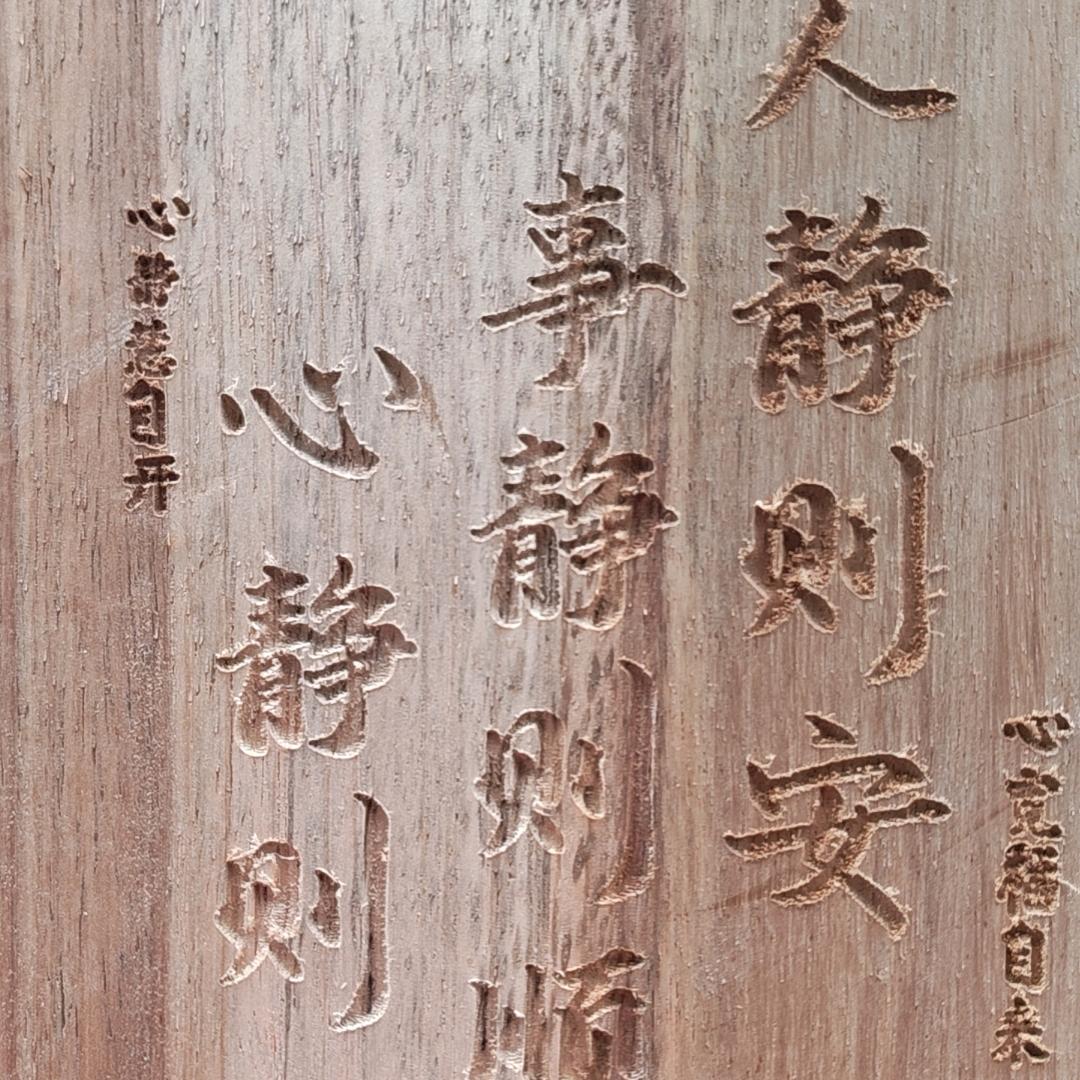 心宽福自来
人静则安
事静则顺
心静则
心自开